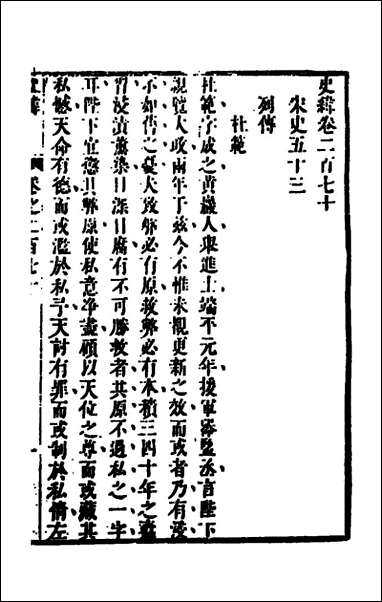 史緯卷二百七十
宋史五十三
列傳
杜範
杜範字成之黃巖人舉進士端平元年授軍器監丞言陛下
親覽大政兩年于兹今不惟未覩更新之效而或者乃有浸
不如昔之憂大致弊必有原救弊必有本積三四十年之蠹
習浸漬薰染日深日腐有不可勝救者其原不過私之一字
耳陛下宜懲其弊原使私意淨盡顧以天位之尊而或藏其
私憾天命有德而或濫於私予天討有罪而或制於私情左
卷之二百七十
一